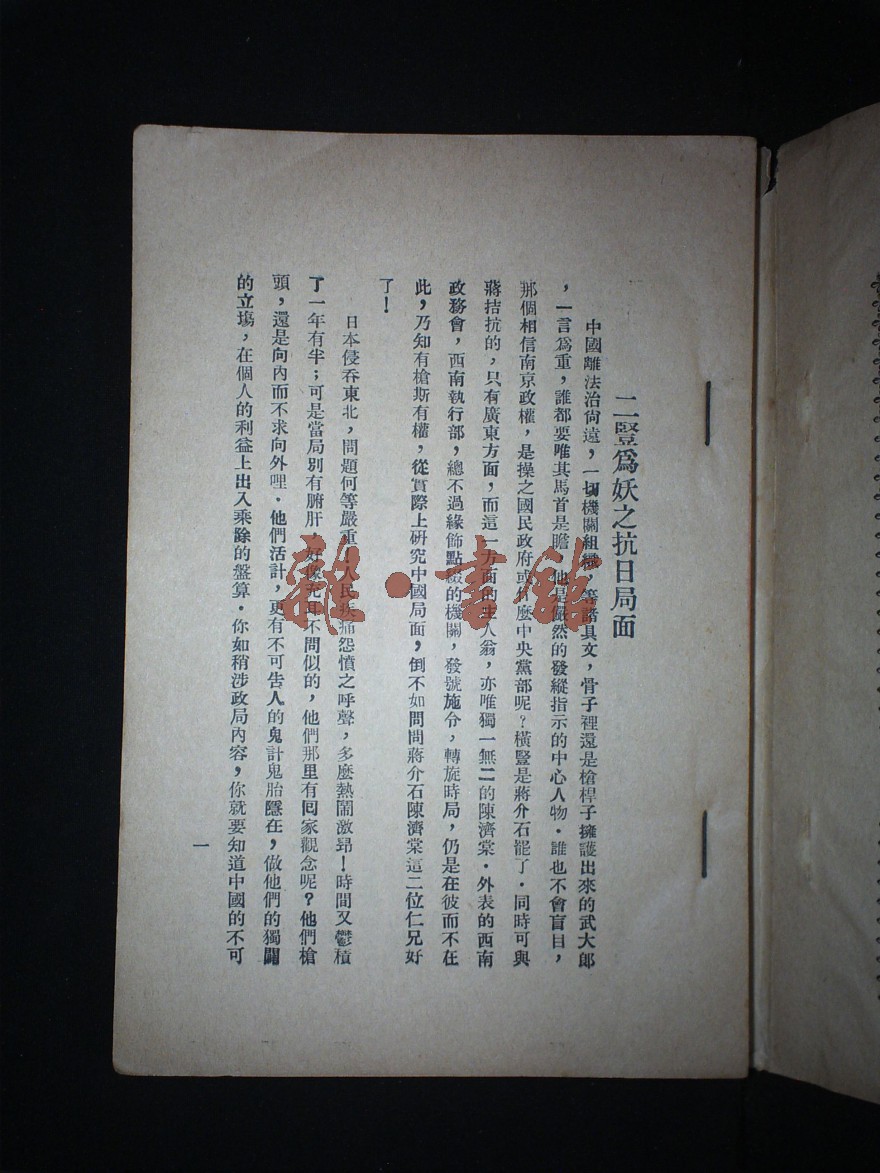 二豎爲妖之抗日局面
中國離法治尙遠，一切機關組織，等諸具文，骨子裡還是槍桿子擁護出來的武大郎
，一言爲重，誰都要唯其馬首是瞻 他是儼然的發縱指示的中心人物．誰也不會盲目，
那個相信南京政權，是操之國民政府或什麼中央黨部呢？橫豎是蔣介石罷了．同時可與
蔣拮抗的，只有廣東方面，而這一方面的主人翁，亦唯獨一無二的陳濟棠．外表的西南
政務會，西南執行部，總不過緣飾點綴的機關，發號施令，轉旋時局，仍是在彼而不在
此，乃知有槍斯有權，從實際上研究中國局面，倒不如問問蔣介石陳濟棠這二位仁兄好
了！
日本侵吞東北，問題何等嚴重，人民疾痛怨憤之呼聲，多麼熱鬧激昂！時間又鬱積
了一年有半；可是當局別有腑肝，好像充耳不問似的，他們那里有囘家觀念呢？他們槍
頭，還是向內而不求向外哩．他們活計，更有不可告人的鬼計鬼胎隱在，做他們的獨鬭
的立塲，在個人的利益上出入乘除的盤算．你如稍涉政局內容，你就要知道中國的不可
一
龍·書館